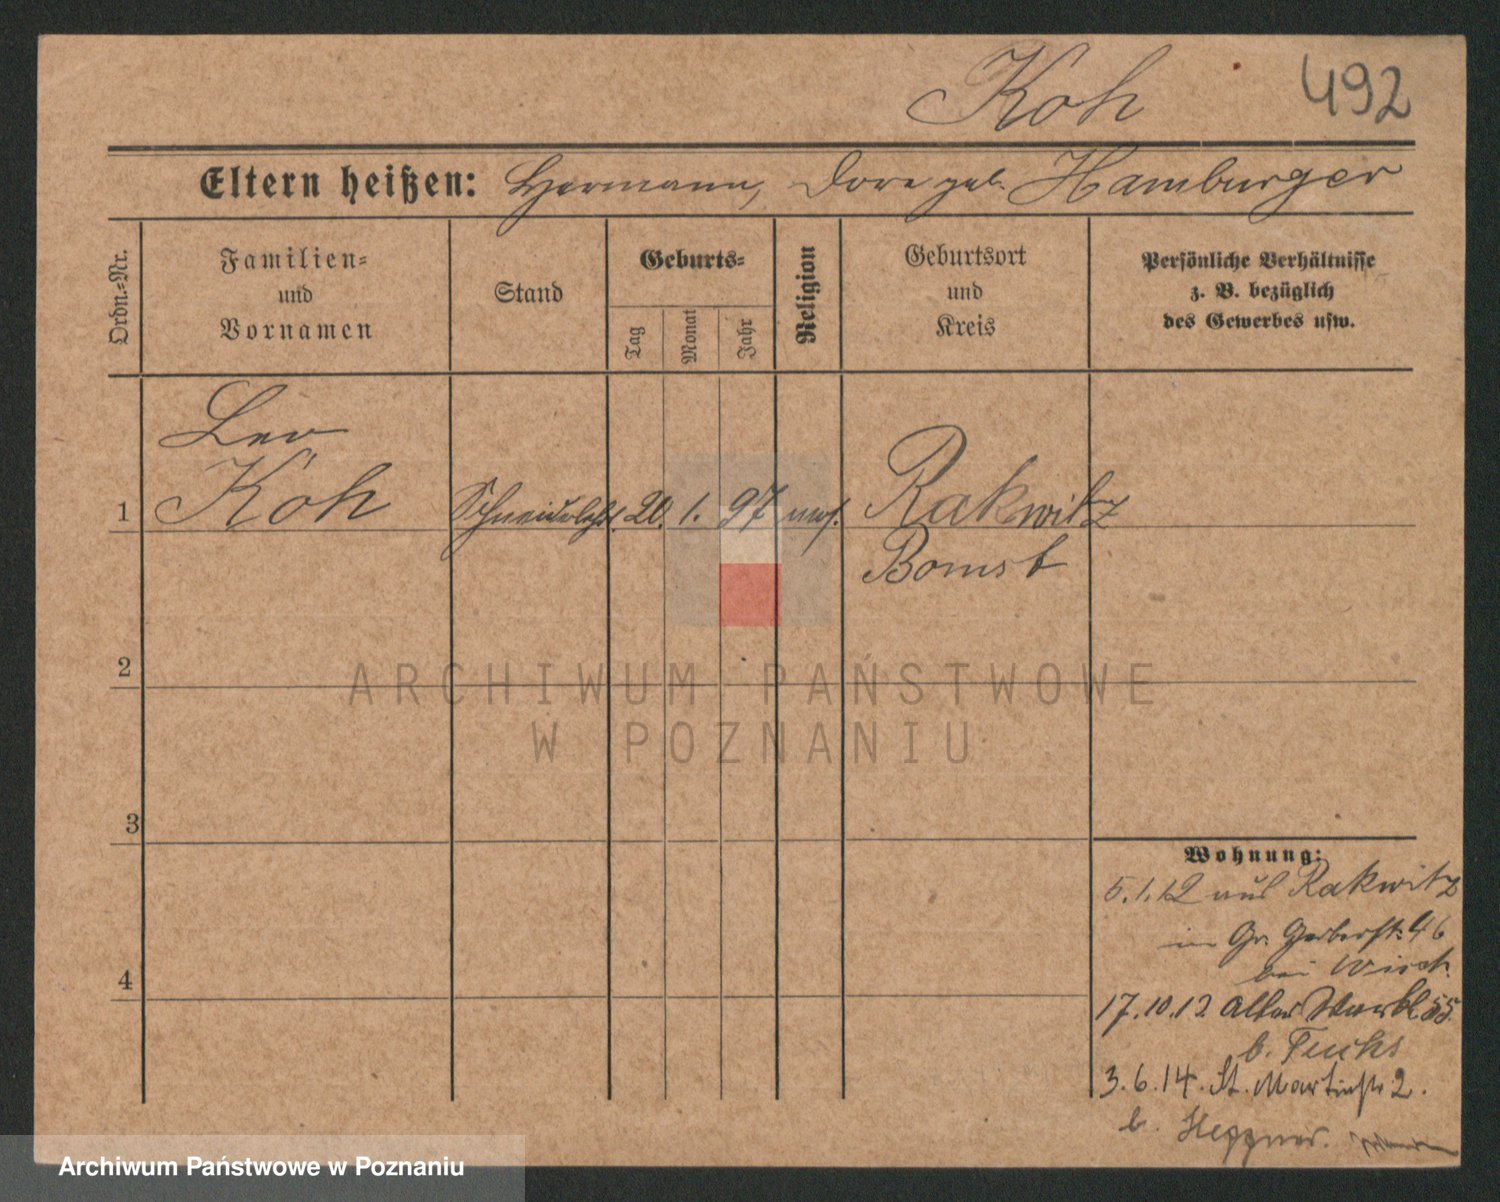 Koh 492
Eltern heißen: Hermann, Dore geb. Hamburger
Ordn.-Nr.
Familien-
und
Vornamen
Stand
Geburts-
Tag
Monat
Jahr
Religion
Geburtsort
und
Kreis
Persönliche Verhältnisse
z. B. bezüglich
des Gewerbes usw.
Leo
1 Koh 20. 1. 97 mos. Rakwitz
Bomst
2
ARCHIWUM PAŃSTWOWE
W POZNANIU
3
Wohnung:
5.1.12 aus Rakwitz
in Gr. Gerberstr. 46
bei
4
17.10.12 Alter Markt 55.
b. Fuchs
3.6.14. St. Martinstr 2.
b. Heppner.
Archiwum Państwowe w Poznaniu